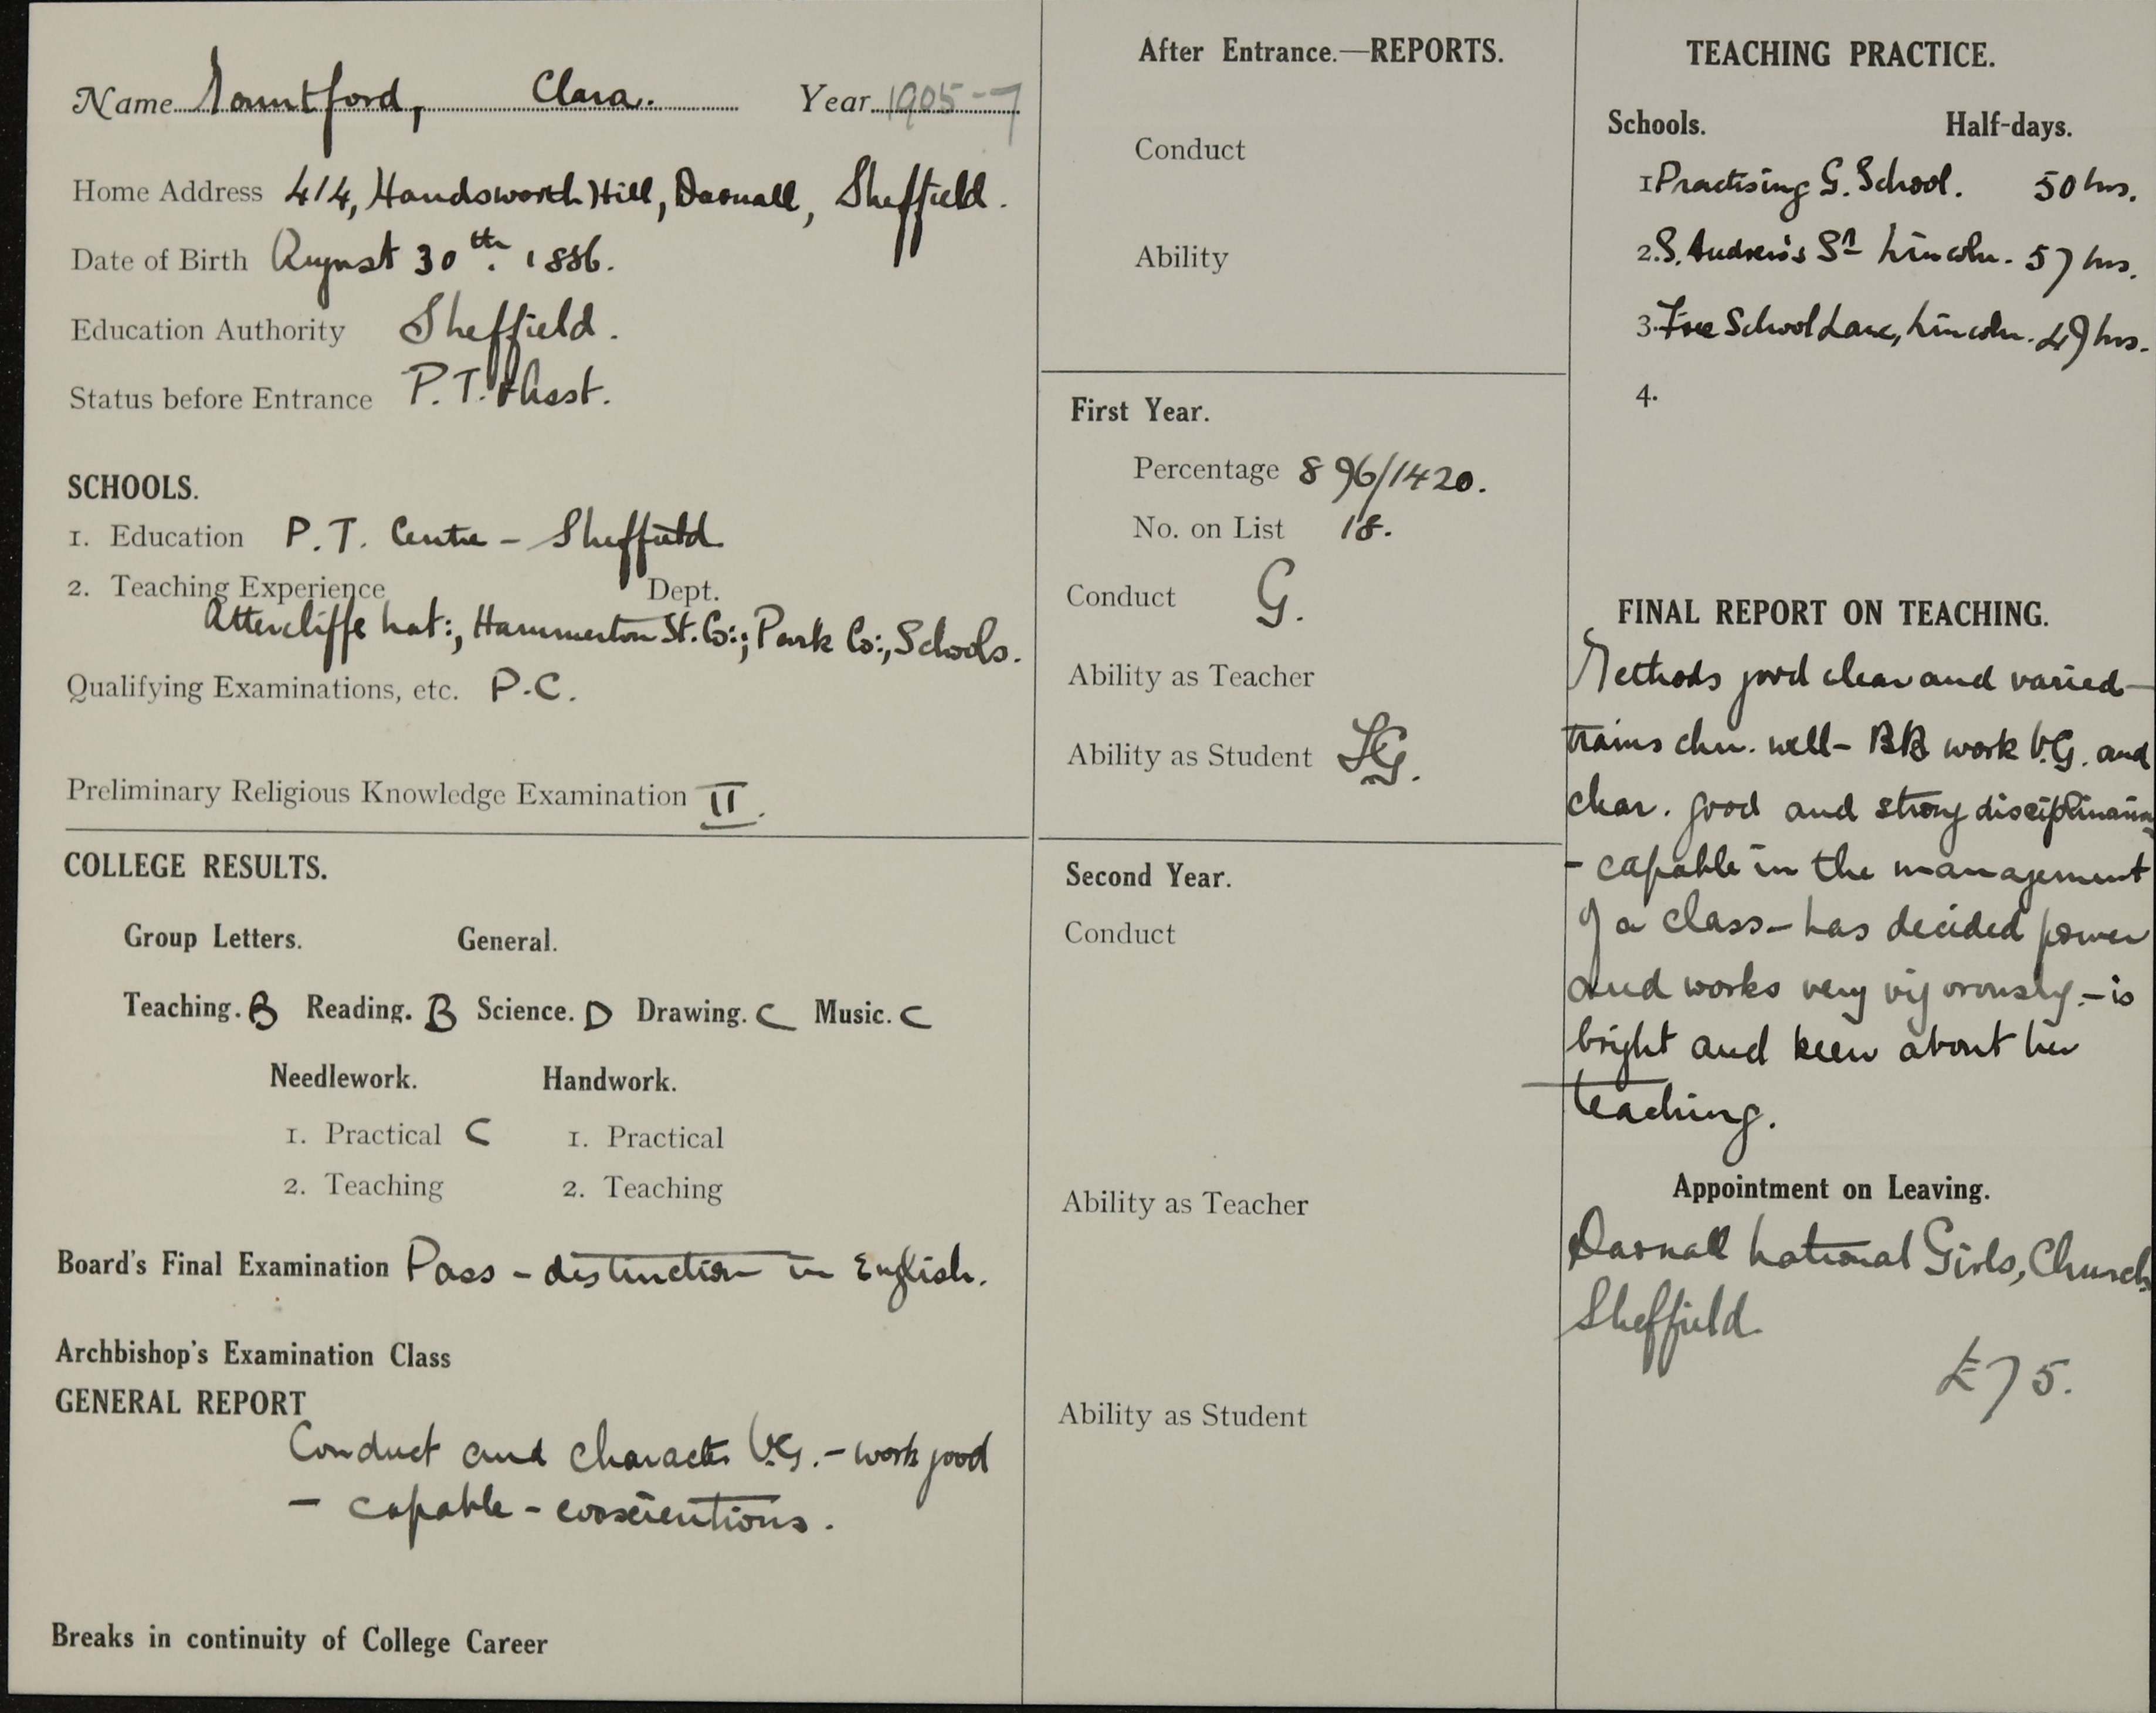 Name Mountford, Clara. Year 1905-7
Home Address 414, Handsworth Hill, Darnall, Sheffield.
Date of Birth August 30th. 1886.
Education Authority Sheffield.
Status before Entrance P.T. & Asst.
SCHOOLS.
1. Education P.T. Centre - Sheffield
2. Teaching Experience Dept.
Attercliffe Nat:, Hammerton St. Co:; Park Co:, Schools.
Qualifying Examinations, etc. P.C.
Preliminary Religious Knowledge Examination II.
COLLEGE RESULTS.
Group Letters. General.
Teaching. B Reading. B Science. D Drawing. C Music. C
Needlework. Handwork.
1. Practical C 1. Practical
2. Teaching 2. Teaching
Board's Final Examination Pass - distinction in English.
Archbishop's Examination Class
GENERAL REPORT
Conduct and character V.G. - work good
- capable - conscientious.
Breaks in continuity of College Career
After Entrance.—REPORTS.
Conduct
Ability
First Year.
Percentage 896/1420.
No. on List 18.
Conduct G.
Ability as Teacher
Ability as Student F.G.
Second Year.
Conduct
Ability as Teacher
Ability as Student
TEACHING PRACTICE.
Schools. Half-days.
1 Practising G. School. 50 hrs.
2. S. Andrew's Sn Lincoln. 57 hrs.
3. Free School Lane, Lincoln. 49 hrs.
4.
FINAL REPORT ON TEACHING.
Methods good clear and varied -
trains chn. well - BB work V.G. and
char. good and strong disciplinarian
- capable in the management
of a class - has decided power
and works very vigorously. - is
bright and keen about her
teaching.
Appointment on Leaving.
Darnall National Girls, Church
Sheffield.
£75.